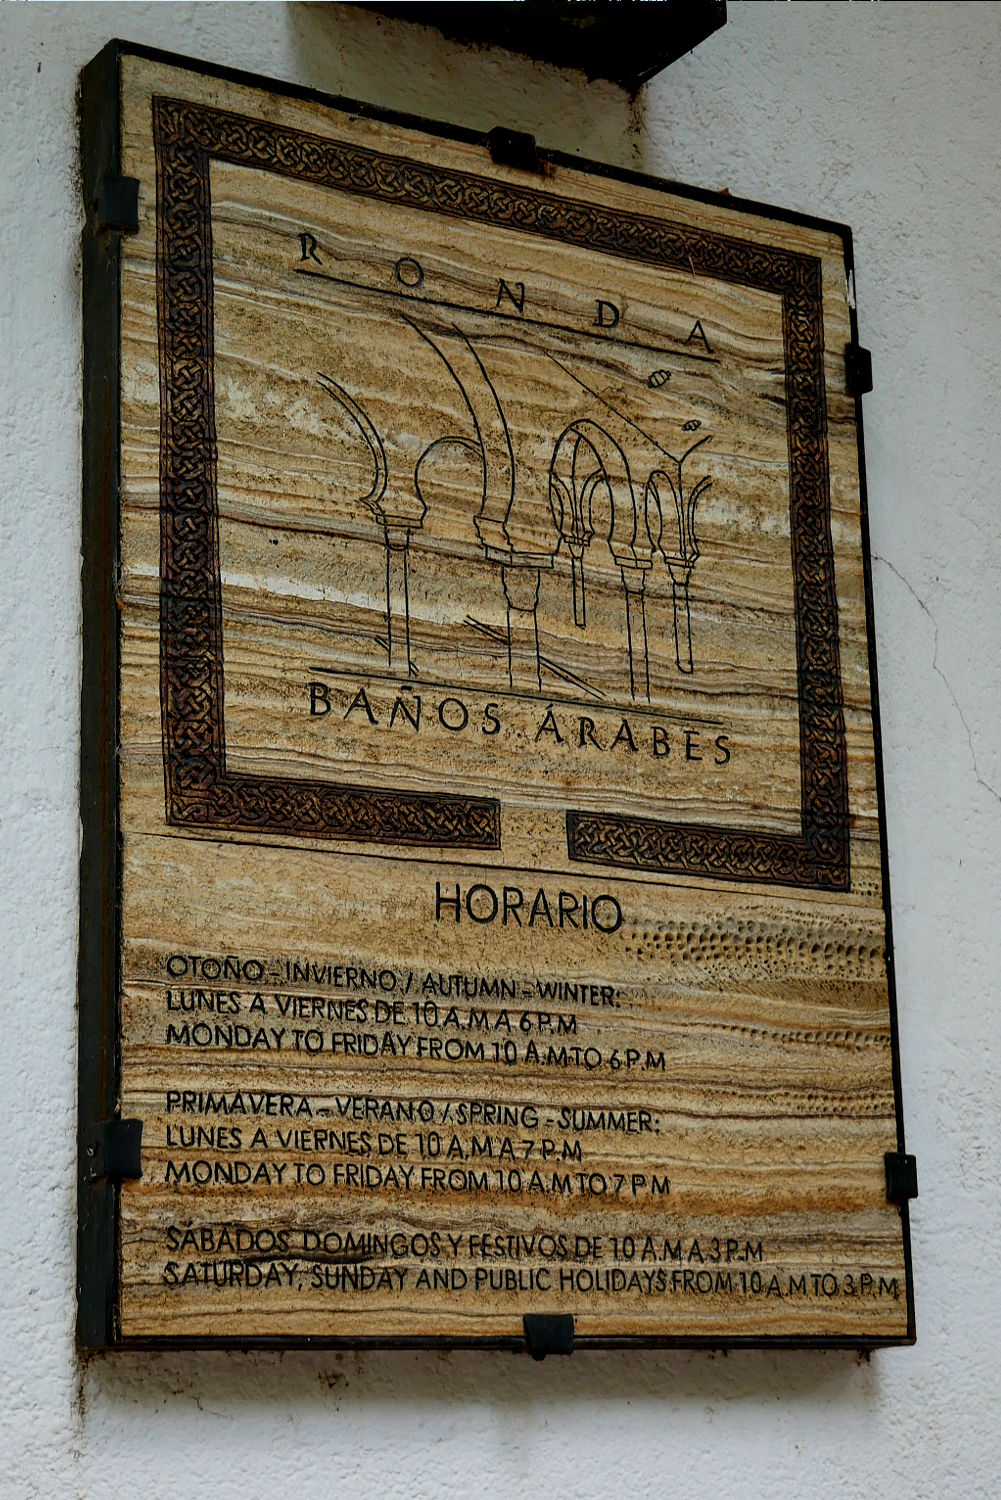 RONDA
BAÑOS ÁRABES
HORARIO
OTOÑO - INVIERNO / AUTUMN - WINTER:
LUNES A VIERNES DE 10 A.M A 6 P.M
MONDAY TO FRIDAY FROM 10 A.M TO 6 P.M
PRIMAVERA - VERANO / SPRING - SUMMER:
LUNES A VIERNES DE 10 A.M A 7 P.M
MONDAY TO FRIDAY FROM 10 A.M TO 7 P.M
SÁBADOS, DOMINGOS Y FESTIVOS DE 10 A.M A 3 P.M
SATURDAY, SUNDAY AND PUBLIC HOLIDAYS FROM 10 A.M TO 3 P.M